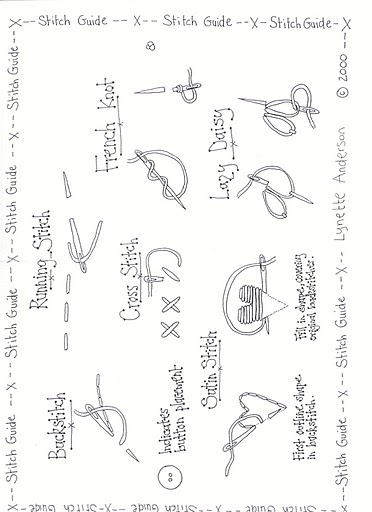 X -- Stitch Guide -- X -- Stitch Guide -- X -- Stitch Guide -- X -- Stitch Guide -- X
X -- Stitch Guide -- X -- Stitch Guide -- X - Stitch Guide - X
Backstitch
Running Stitch
French Knot
Indicates
button placement
Cross Stitch
Satin Stitch
Lazy Daisy
First outline shape
in backstitch.
Fill in shape, covering
original backstitches.
X -- Stitch Guide -- X -- Stitch Guide -- X -- Lynette Anderson © 2000 -- X
X -- Stitch Guide -- X -- Stitch Guide -- X - Stitch Guide - X